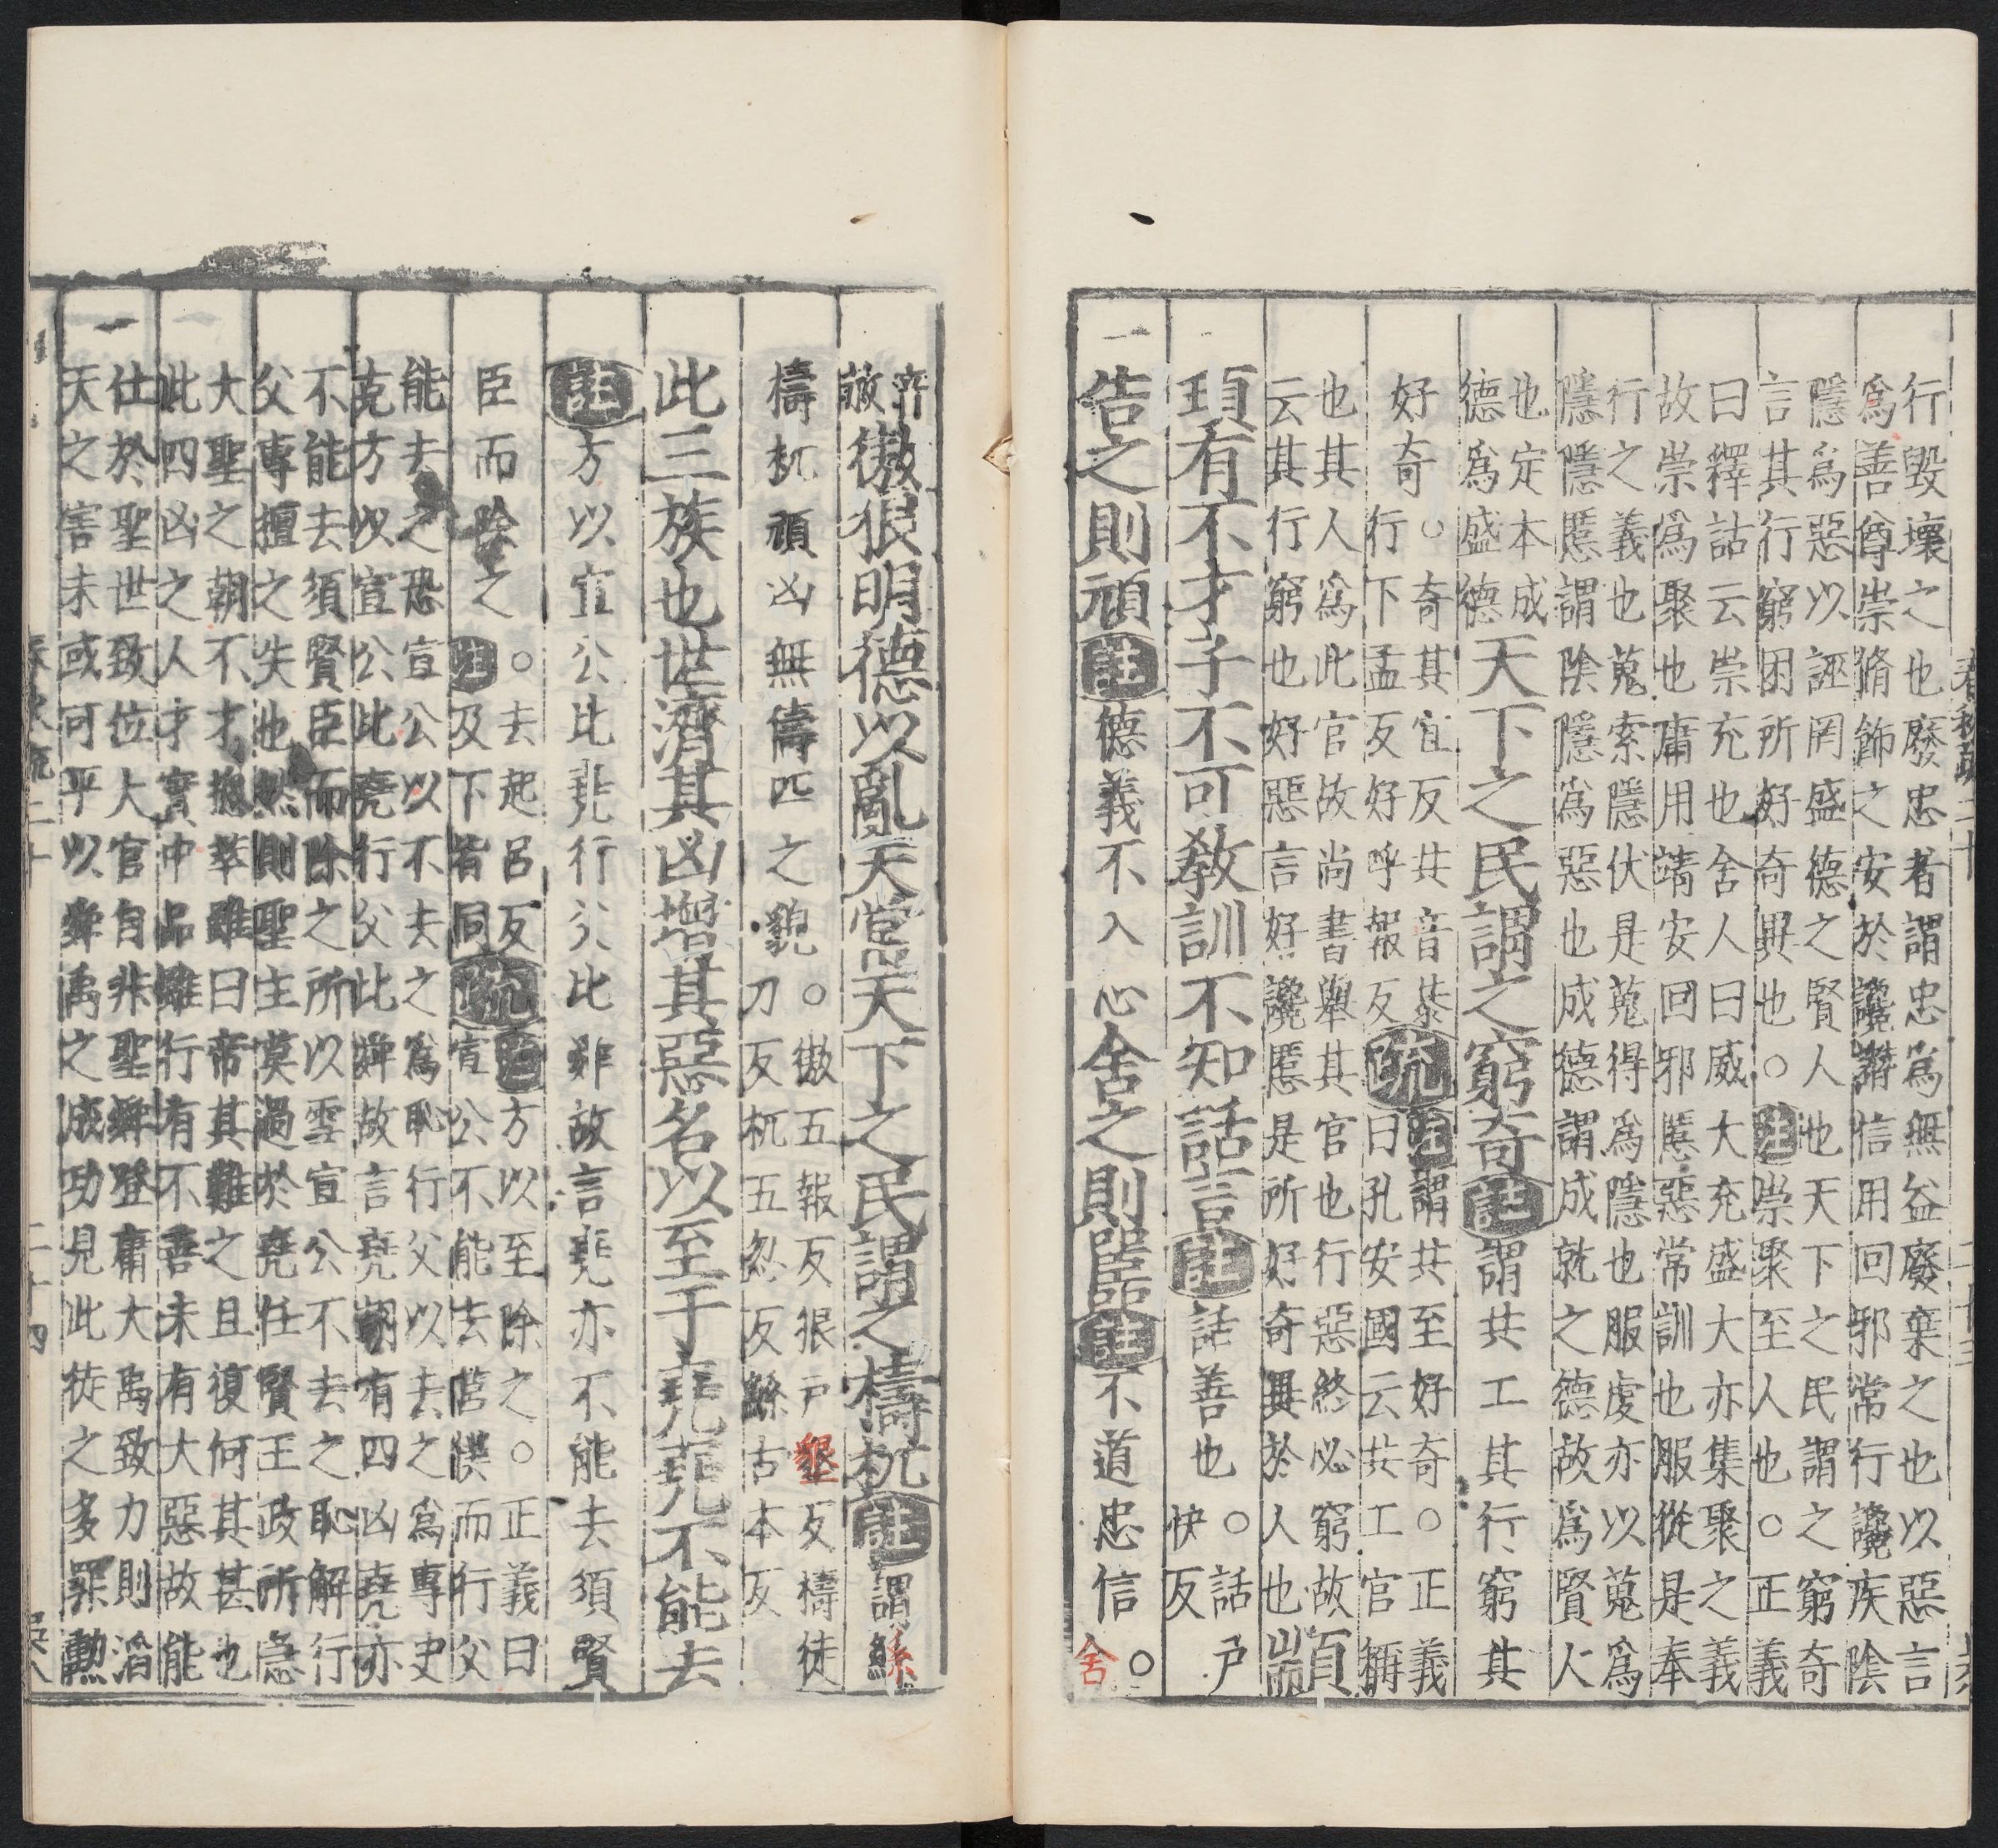 行毀壞之也廢忠者謂忠爲無益廢棄之也以惡言
爲善尊崇脩飾之安於讒譖信用回邪常行讒疾陰
隱爲惡以誣罔盛德之賢人也天下之民謂之窮奇
言其行窮困所好奇異也○註崇聚至人也○正義
曰釋詁云崇充也舍人曰威大充盛大亦集聚之義
故崇爲聚也庸用靖安回邪慝惡常訓也服從是奉
行之義也蒐索隱伏是蒐得爲隱也服虔亦以蒐爲
隱隱慝謂陰隱爲惡也成德謂成就之德故爲賢人
也定本成
德爲盛德
天下之民謂之窮奇註謂共工其行窮其
好奇○
奇其宜反共音恭
行下孟反好呼報反
疏
註謂共至好奇○正義
曰孔安國云共工官稱
也其人爲此官故尚書舉其官也行惡終必窮故
云其行窮也好惡言好讒慝是所好奇異於人也
顓
頊有不才子不可敎訓不知話言註話善也○
話戸
快反
告之則頑註德義不入心舍之則嚚註不道忠信○
舍
春秋疏二十
二十三
濟
蔽
傲狠明德以亂天常天下之民謂之檮杌註謂鯀
檮杌頑凶無儔匹之貌○
傲五報反很戸墾反檮徒
刀反杌五忽反鯀古本反
此三族也世濟其凶增其惡名以至于堯堯不能去
註方以宣公比堯行父比舜故言堯亦不能去須賢
臣而除之○
去起呂反
註及下皆同
疏
註方以至除之○正義曰
宣公不能去莒僕而行父
能去之恐宣公以不去之爲恥行父以去之爲專史
克方以宣公比堯行父比舜故言堯朝有四凶堯亦
不能去須賢臣而除之所以雪宣公不去之恥解行
父專擅之失也然則聖主莫過於堯任賢王政所急
大聖之朝不才揔萃雖曰帝其難之且復何其甚也
此四凶之人才實中品雖行有不善未有大惡故能
仕於聖世致位大官自非聖舜登庸大禹致力則滔
天之害未或可平以舜禹之成功見此徒之多罪勳
二十
二十四